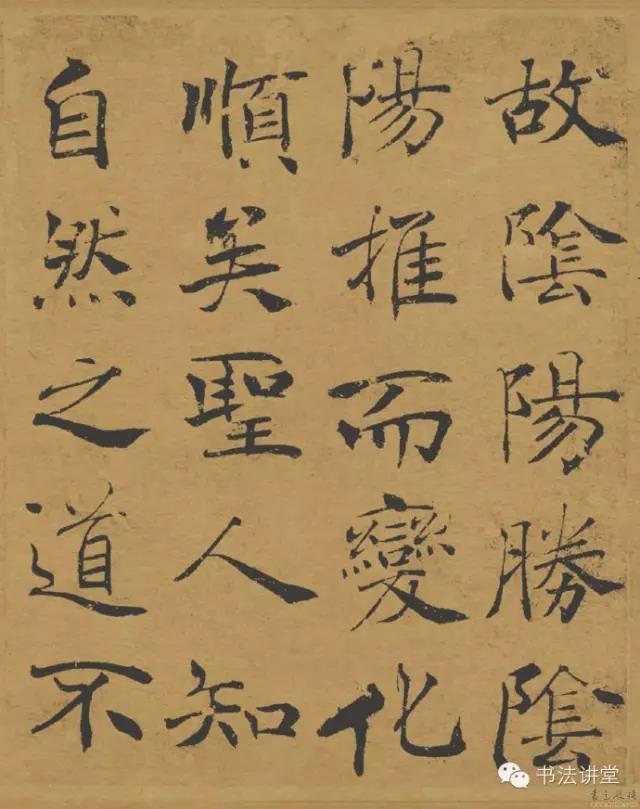 故陰陽勝陰
陽推而變化
順矣聖人知
自然之道不
书法讲堂